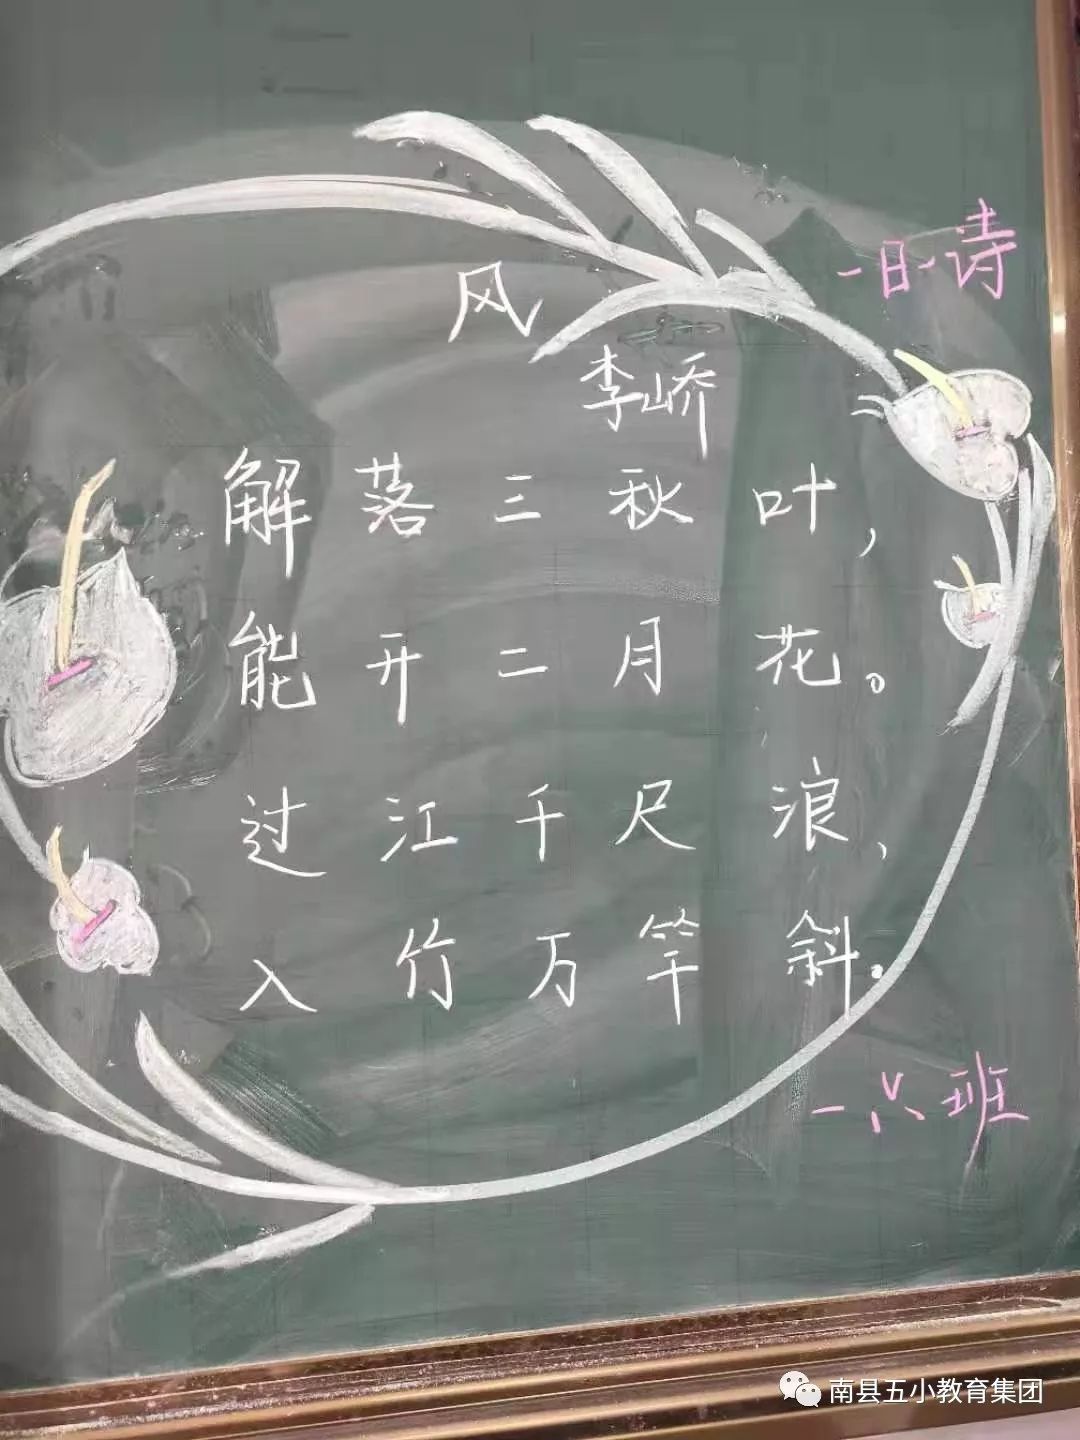 一日一诗
风
李峤
解落三秋叶，
能开二月花。
过江千尺浪，
入竹万竿斜。
一六班
南县五小教育集团